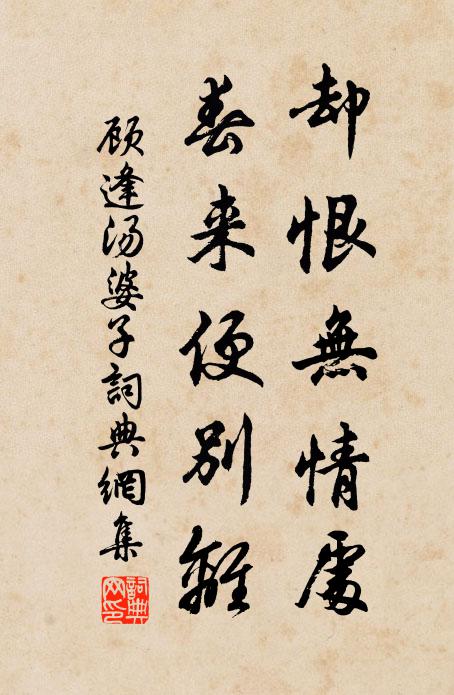 却恨無情處
春来便別離
顾逢汤婆子詞典網集
詞典网印